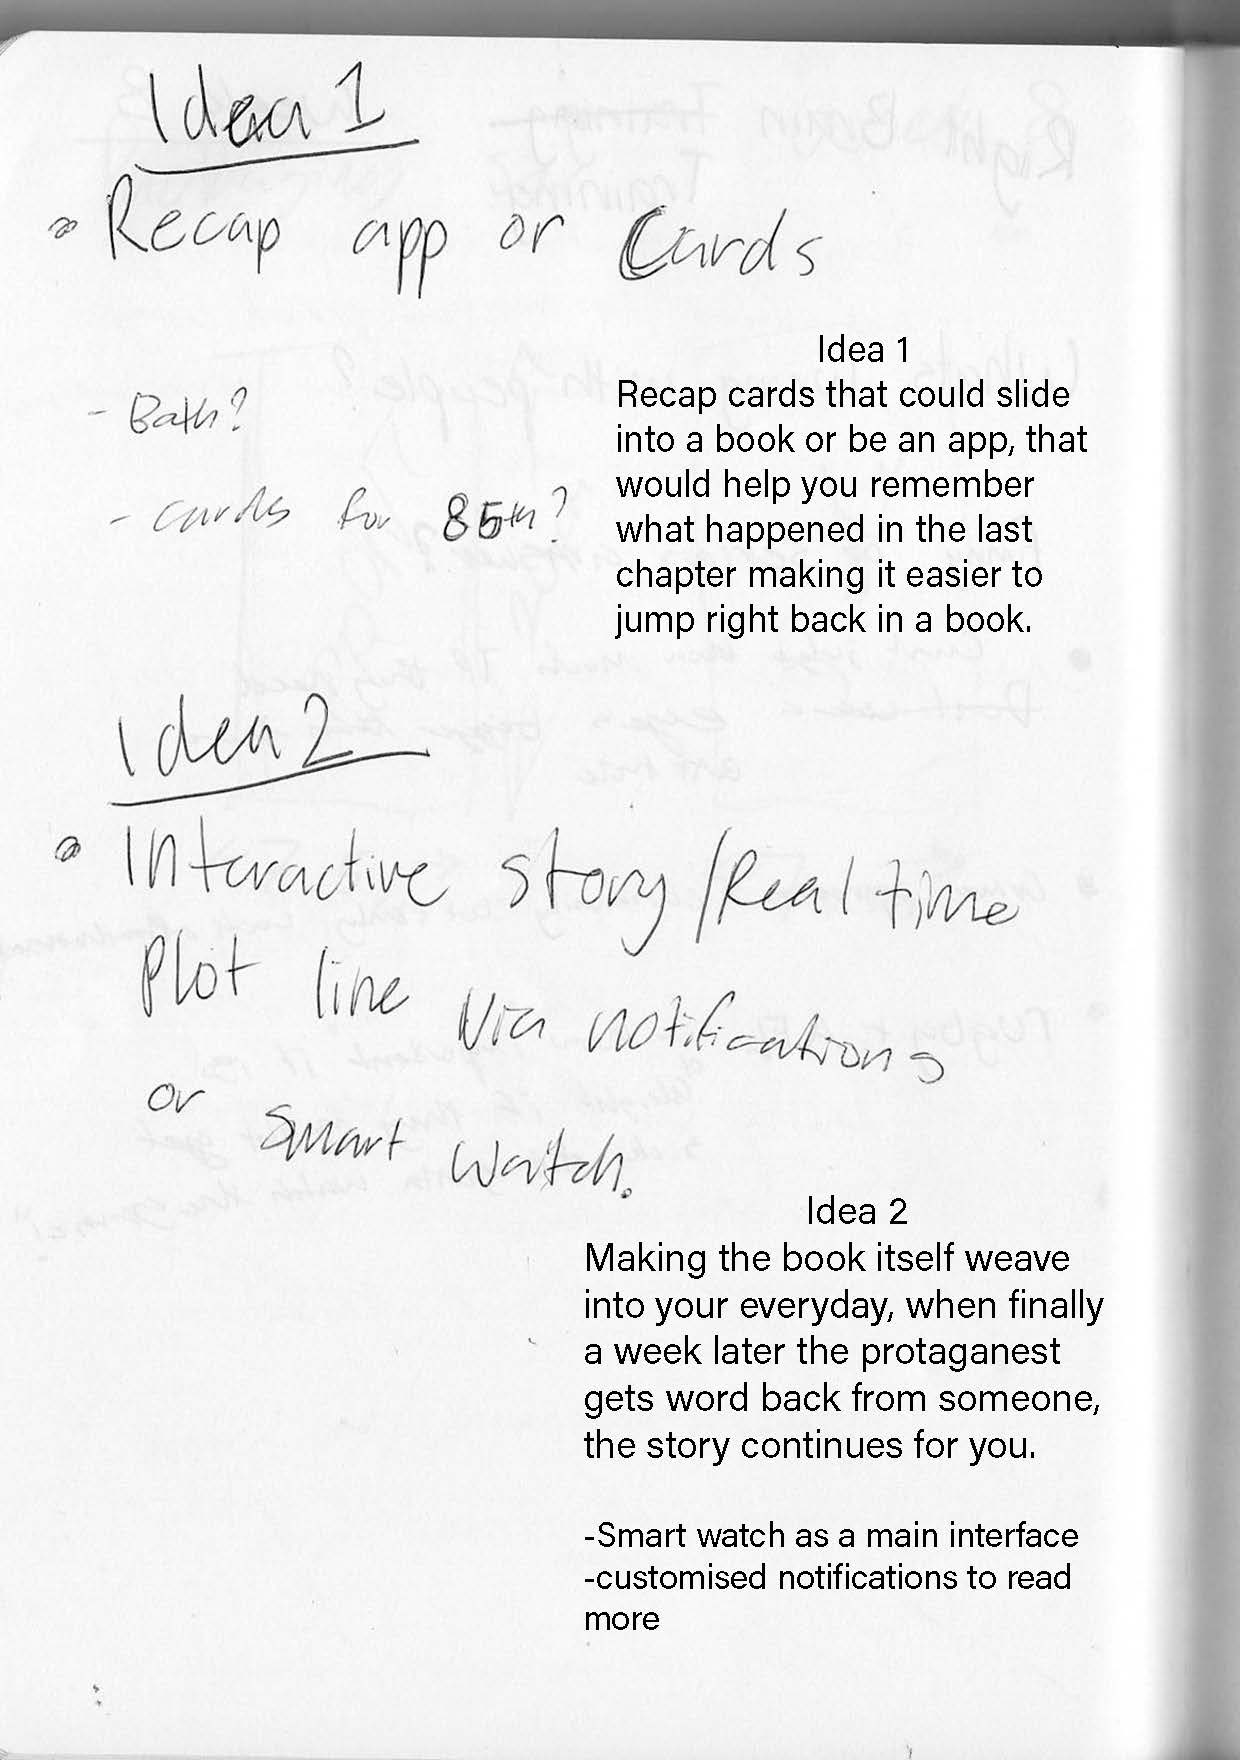 Idea 1
Recap app or Cards
Idea 1
Recap cards that could slide
into a book or be an app, that
would help you remember
what happened in the last
chapter making it easier to
jump right back in a book.
- Bath?
- cards for 85th?
Idea 2
Interactive story/Real time
Plot line via notifications
or smart watch.
Idea 2
Making the book itself weave
into your everyday, when finally
a week later the protaganest
gets word back from someone,
the story continues for you.
-Smart watch as a main interface
-customised notifications to read
more